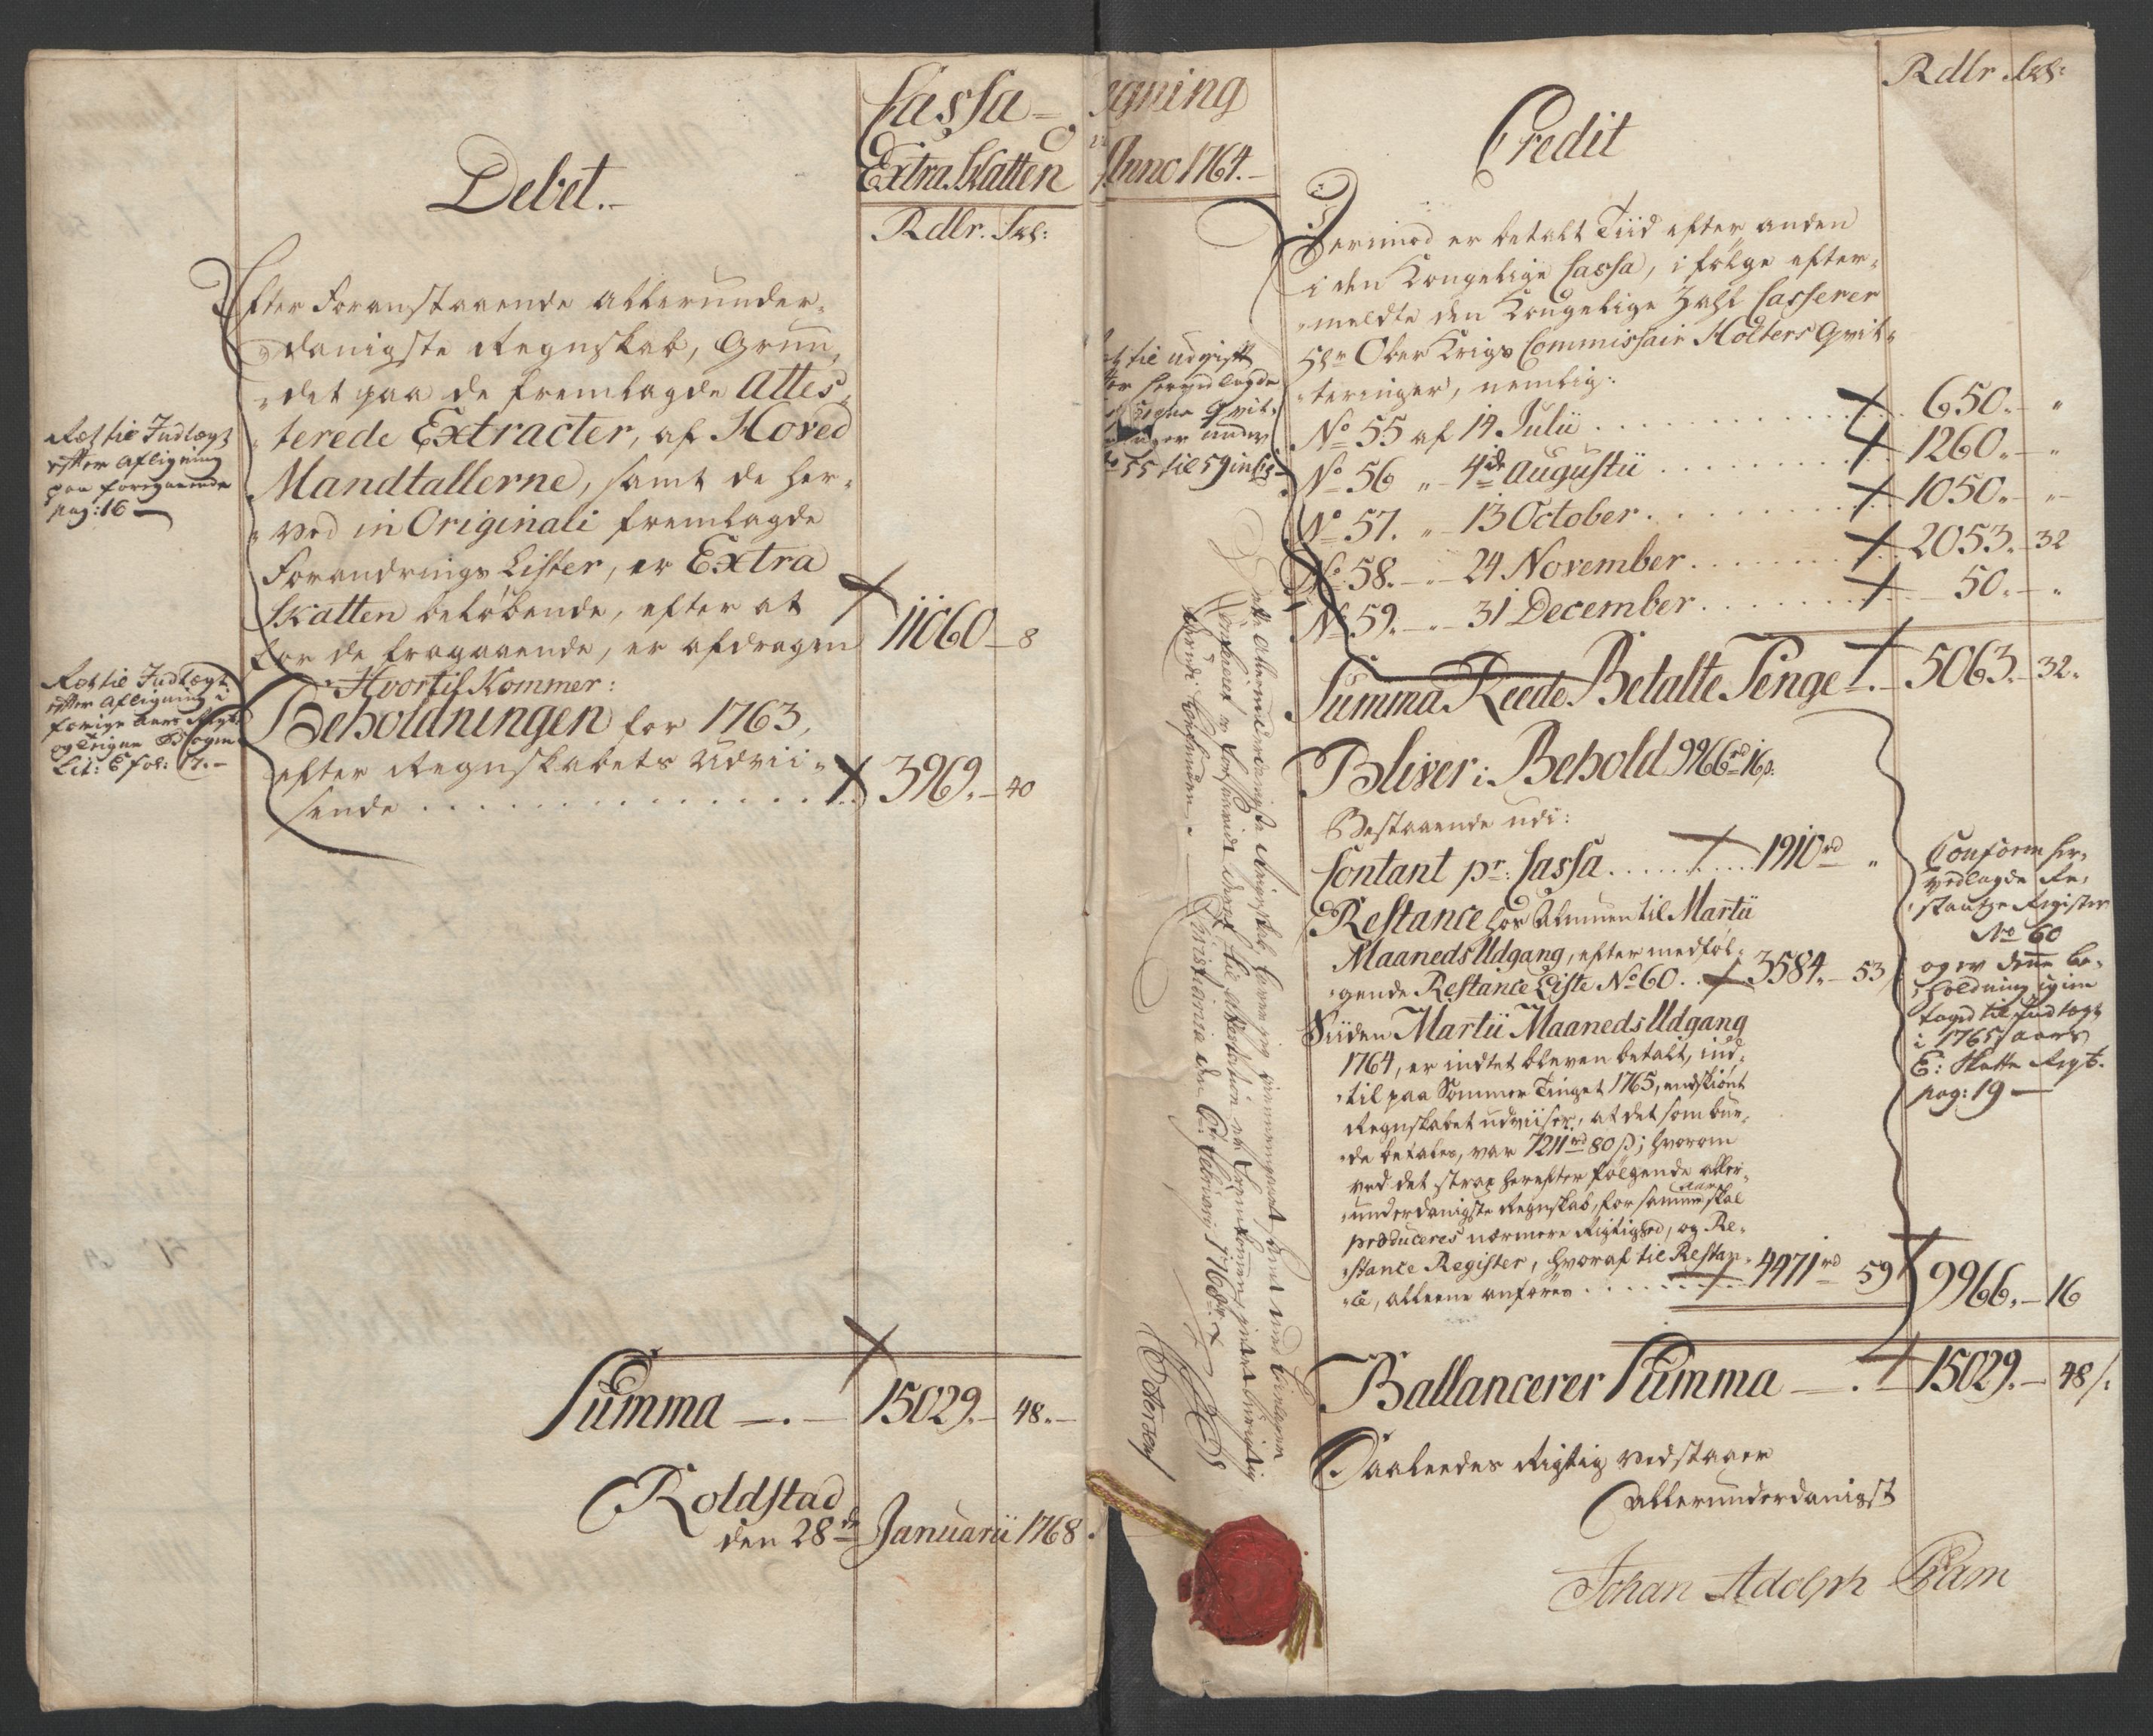 Cassa=
Extra Skatten
Debet.
Rdlr. Sks:
Efter Foranstaaende allerunder-
danigste Regnskab, Grun-
det paa de fremlagde Attes-
terede Extracter, af Hoved
Mandtallerne, samt de her-
ved in Originali fremlagde
Forandrings Lister, er Extra
Skatten beløbende, efter at
for de fragaaende, er afdragen 11060 - 8
Hvortil Kommer:
Beholdningen for 1763,
efter Regnskabets Udvii-
sende . . . . . . . . . . 3969. - 40
Rigtig til Indtægt
efter afligning
paa foregaaende
pag: 16
Rigtig til Indtægt
efter afligning i
forige aars Regt.
Summa - . - 15029. - 48. -
Roldstad
den 28de Januarii 1768.
gning
Anno 1764. -
Credit
Rdlr. Sks:
Derimod er betalt Tiid efter anden
i den Kongelige Cassa, i følge efter-
meldte den Kongelige Zahl Casserer
Hr Ober Krigs Commissair Holters Qvit-
teringer, nemlig:
No 55 af 14 Julii . . . . 650. - "
No 56 " 4de Augustii . . . . 1260. - "
No 57. " 13 October . . . . 1050. - "
No 58. - " - 24 November . . . . 2053. - 32
No 59. - " - 31 December . . . . 50. - "
Summa Reede Betalte Penge 5063. - 32.
Bliver i Behold 9966rd 16s.
Bestaaende udi:
Contant pr: Cassa . . . . 1910rd "
Restance hos Almuen til Martii
Maaneds Udgang, efter medføl-
gende Restance Liste No 60. . 3584. - 53
Siiden Martii Maaneds Udgang
1764, er indtet bleven betalt, ind-
til paa Sommer Tinget 1765, endskiønt
Regnskabet udviiser, at det som bur-
de betales, var 7211rd 80 s; hvorom
ved det strax herefter følgende aller-
underdanigste Regnskab, for samme skal
produceres nærmere Rigtighed, og Re-
stance Register, hvoraf til Restan-
ce, alleene anføres . . . . 4471rd 59
9966. - 16
til udgift
hervedlagde
Qvit-
under
55 til 59 incl:
Conform her-
vedlagde Re-
stantze Register
No 60
og er denne be-
holdning igien
taged til Indtægt
i 1765 aars
E: Skatte Regt.
pag: 19
Christiania den 6te Februarii 1768.
Ballancerer Summa - . - 15029. - 48 /.
Saaleedes Rigtig vedstaaer
allerunderdanigst
Johan Adolph Pram